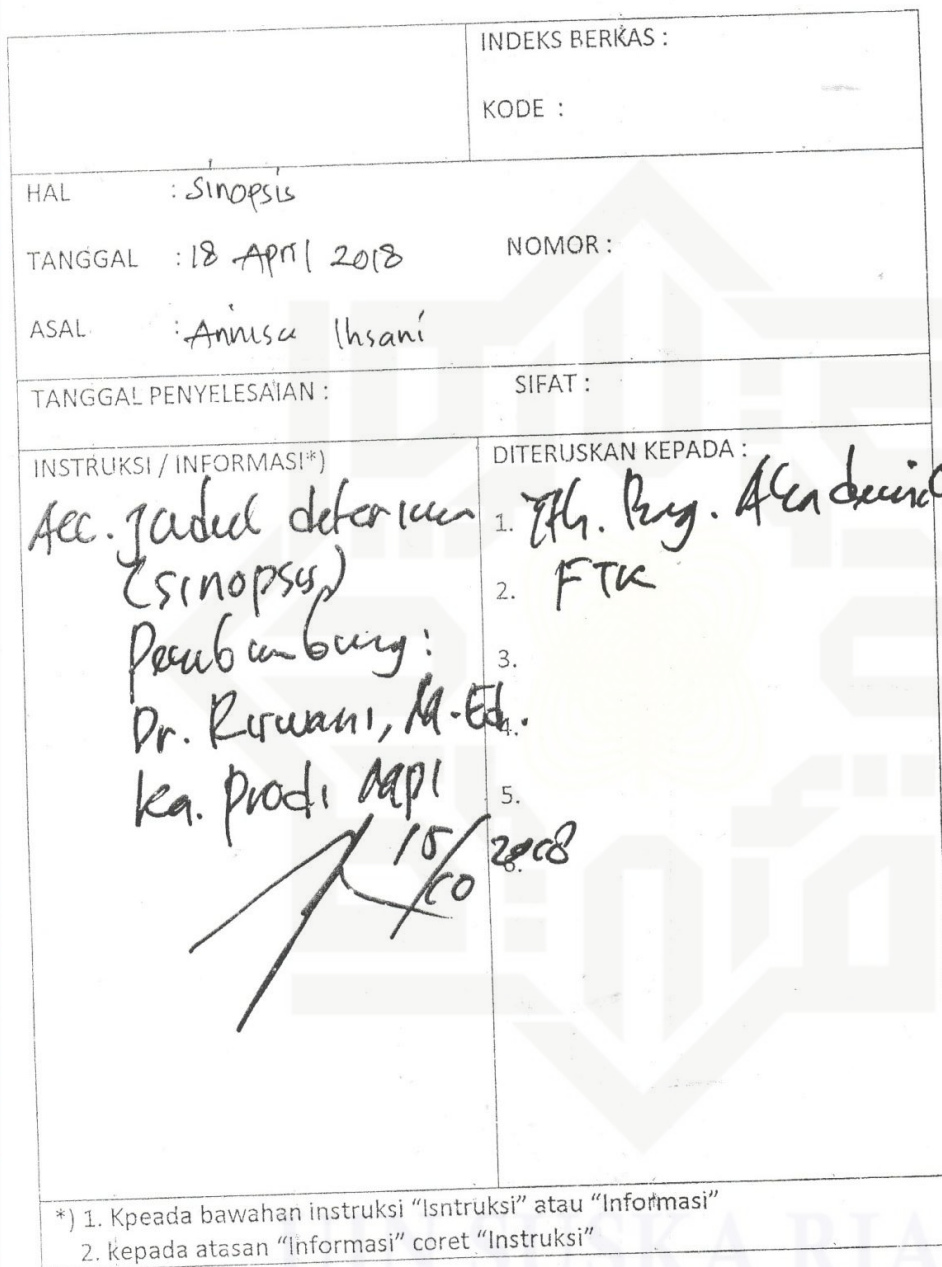 INDEKS BERKAS :
KODE :
HAL : Sinopsis
TANGGAL : 18 April 2018 NOMOR :
ASAL : Annisa Ihsani
TANGGAL PENYELESAIAN : SIFAT :
INSTRUKSI / INFORMASI*)
Acc. Judul diterima
(sinopsis)
Pembimbing:
Dr. M.Ed.
Ka. Prodi MPI
15/10 2018
DITERUSKAN KEPADA :
1. Yth. Akademik
2. FTK
3.
4.
5.
6.
*) 1. Kpeada bawahan instruksi "Isntruksi" atau "Informasi"
2. kepada atasan "Informasi" coret "Instruksi"
UIN SUSKA RIA